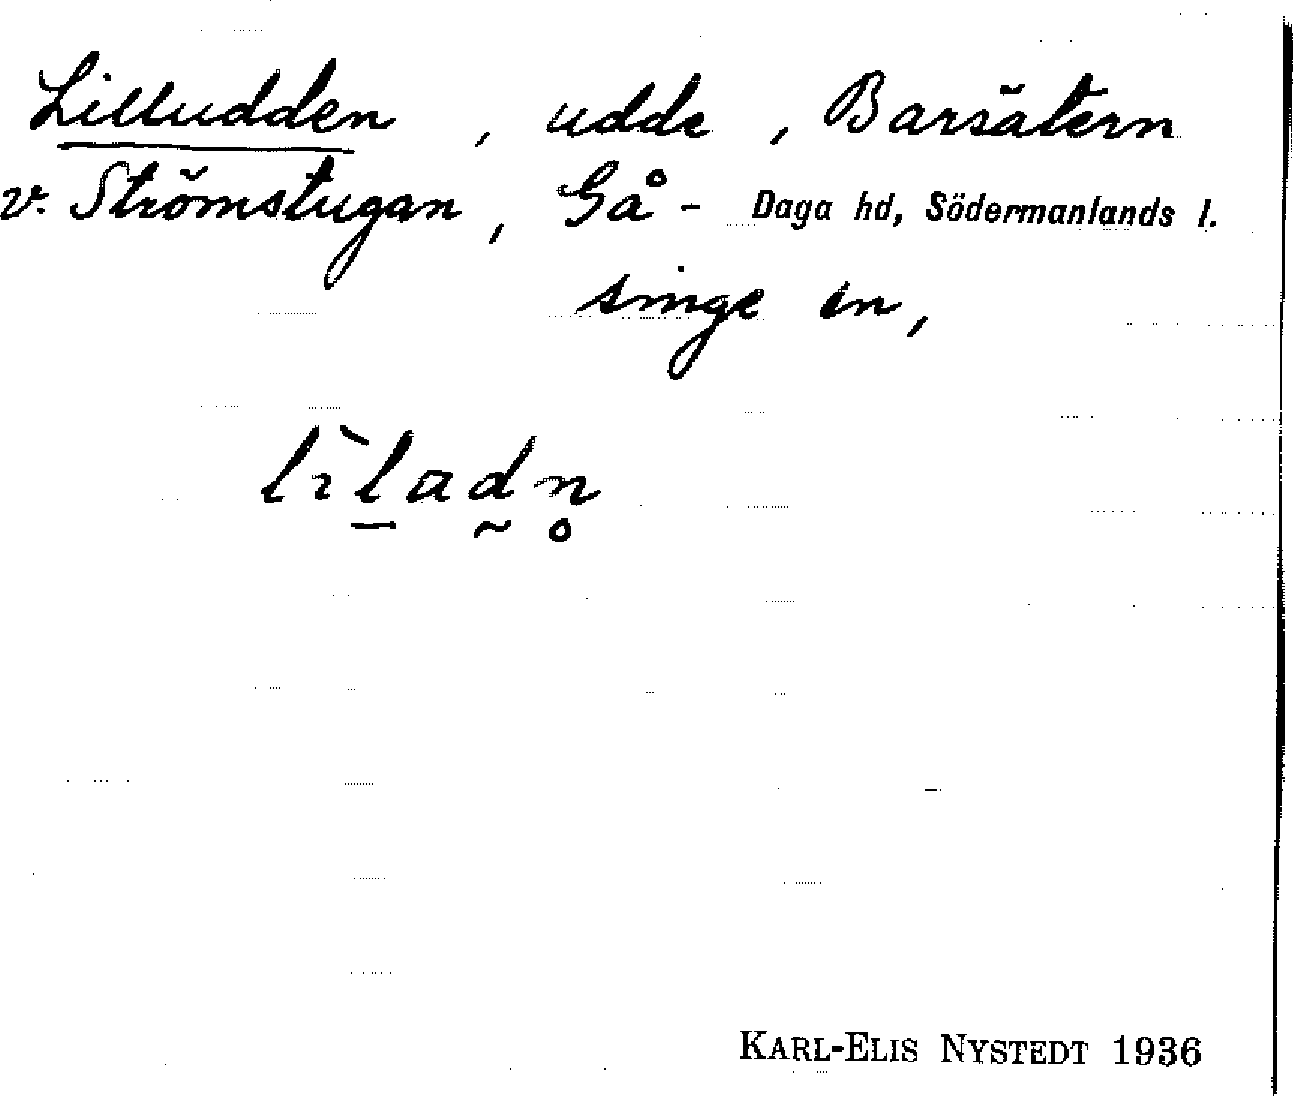 Lilludden, udde, Barsätern
v. Strömstugan, Gå- Daga hd, Södermanlands l.
singe sn,
lɩ̀ladn̥
KARL-ELIS NYSTEDT 1936